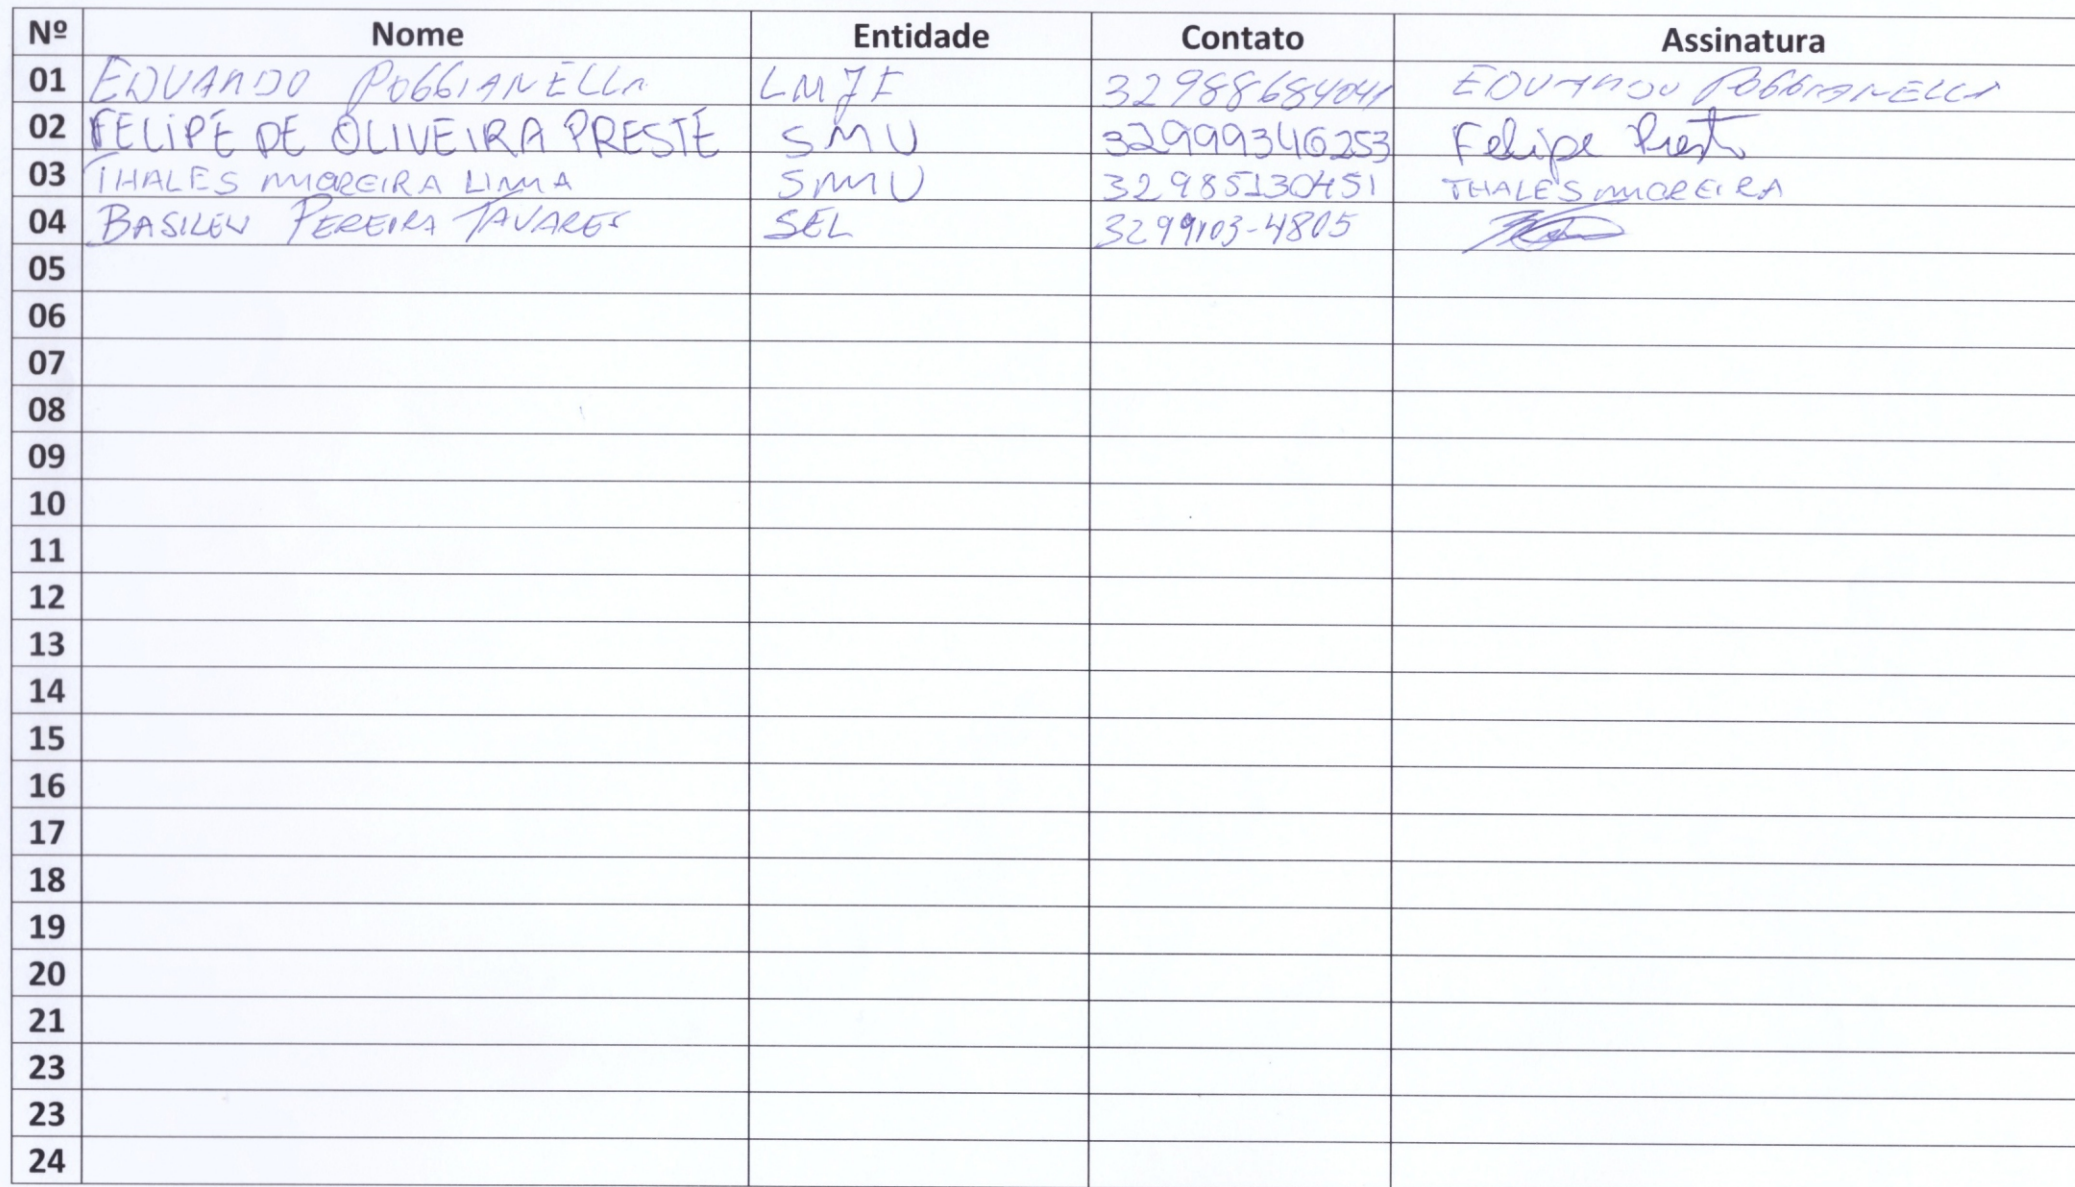 Nº Nome Entidade Contato Assinatura
01 EDUARDO POGGIANELLA LMJF 32988684041 EDUARDO POGGIANELLA
02 FELIPE DE OLIVEIRA PRESTE SMU 32999346253 Felipe Preste
03 THALES MOREIRA LIMA SMU 32985130451 THALES MOREIRA
04 BASILEU PEREIRA TAVARES SEL 3299103-4805
05
06
07
08
09
10
11
12
13
14
15
16
17
18
19
20
21
23
23
24